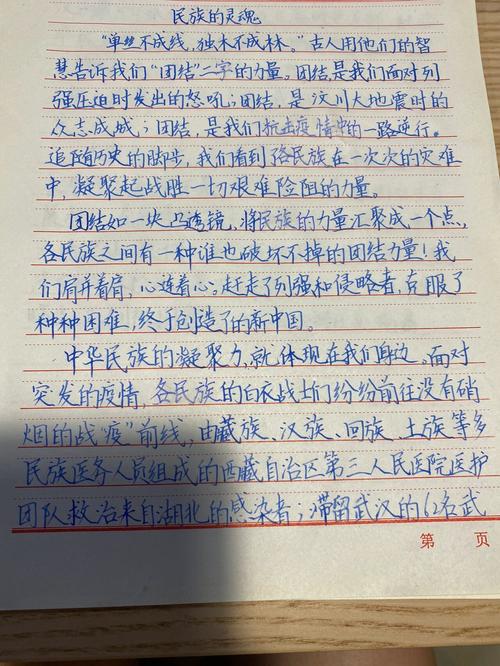 民族的灵魂
“单丝不成线，独木不成林。”古人用他们的智
慧告诉我们“团结”二字的力量。团结，是我们面对列
强压迫时发出的怒吼；团结，是汶川大地震时的
众志成城；团结，是我们抗击疫情中的一路逆行。
追随历史的脚步，我们看到各民族在一次次的灾难
中，凝聚起战胜一切艰难险阻的力量。
团结如一块凸透镜，将民族的力量汇聚成一个点，
各民族之间有一种谁也破坏不掉的团结力量！我
们肩并着肩，心连着心，赶走了列强和侵略者，克服了
种种困难，终于创造了的新中国。
中华民族的凝聚力，就体现在我们身边。面对
突发的疫情，各民族的白衣战士们纷纷前往没有硝
烟的战“疫”前线，由藏族、汉族、回族、土族等多
民族医务人员组成的西藏自治区第三人民医院医护
团队救治来自湖北的感染者；滞留武汉的62名武
第 页